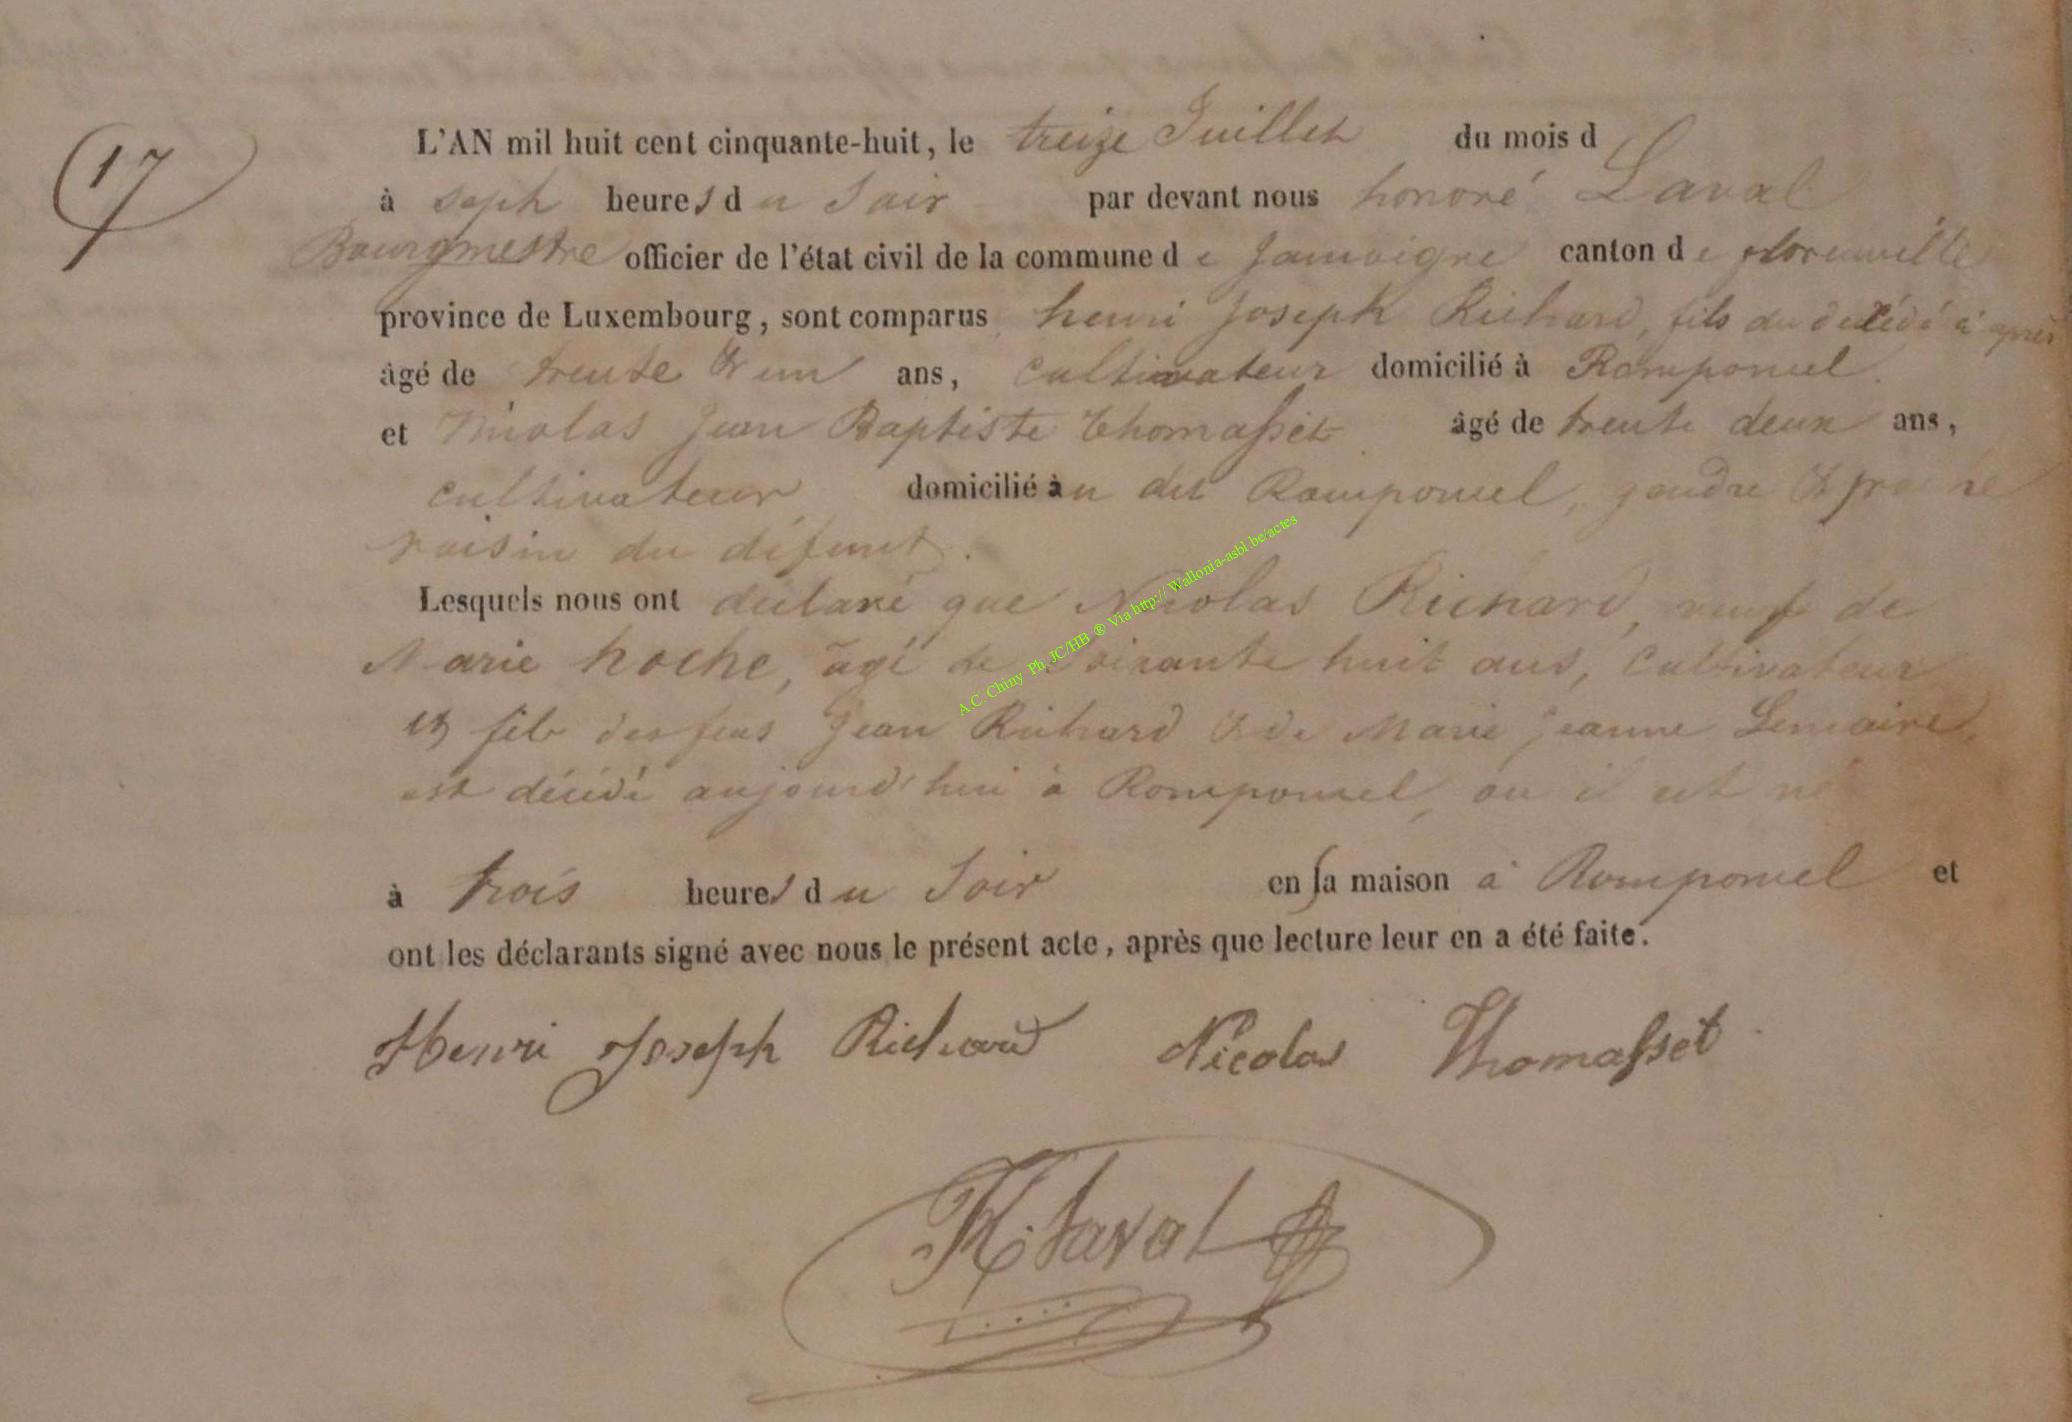 17
L'AN mil huit cent cinquante-huit, le treize Juillet du mois d
à sept heures du Soir par devant nous honoré Laval
Bourgmestre officier de l'état civil de la commune de Jamoigne canton de florenville
province de Luxembourg, sont comparus henri Joseph Richard, fils du décédé ci après
âgé de trente & un ans, Cultivateur domicilié à Romponcel
et Nicolas Jean Baptiste Thomasset âgé de trente deux ans,
cultivateur domicilié au dit Romponcel, gendre &
voisin du défunt.
Lesquels nous ont déclaré que Nicolas Richard, veuf de
Marie hoche, âgé de soixante huit ans, Cultivateur
et fils des feus Jean Richard & de Marie Jeanne Lemaire,
est décédé aujourd'hui à Romponcel, ou il est né
à trois heures du Soir en sa maison à Romponcel et
ont les déclarants signé avec nous le présent acte, après que lecture leur en a été faite.
Henri Joseph Richard Nicolas Thomasset
H. Laval
A.C. Chiny Ph. JC/HB ® Via http://Wallonia-asbl.be/actes